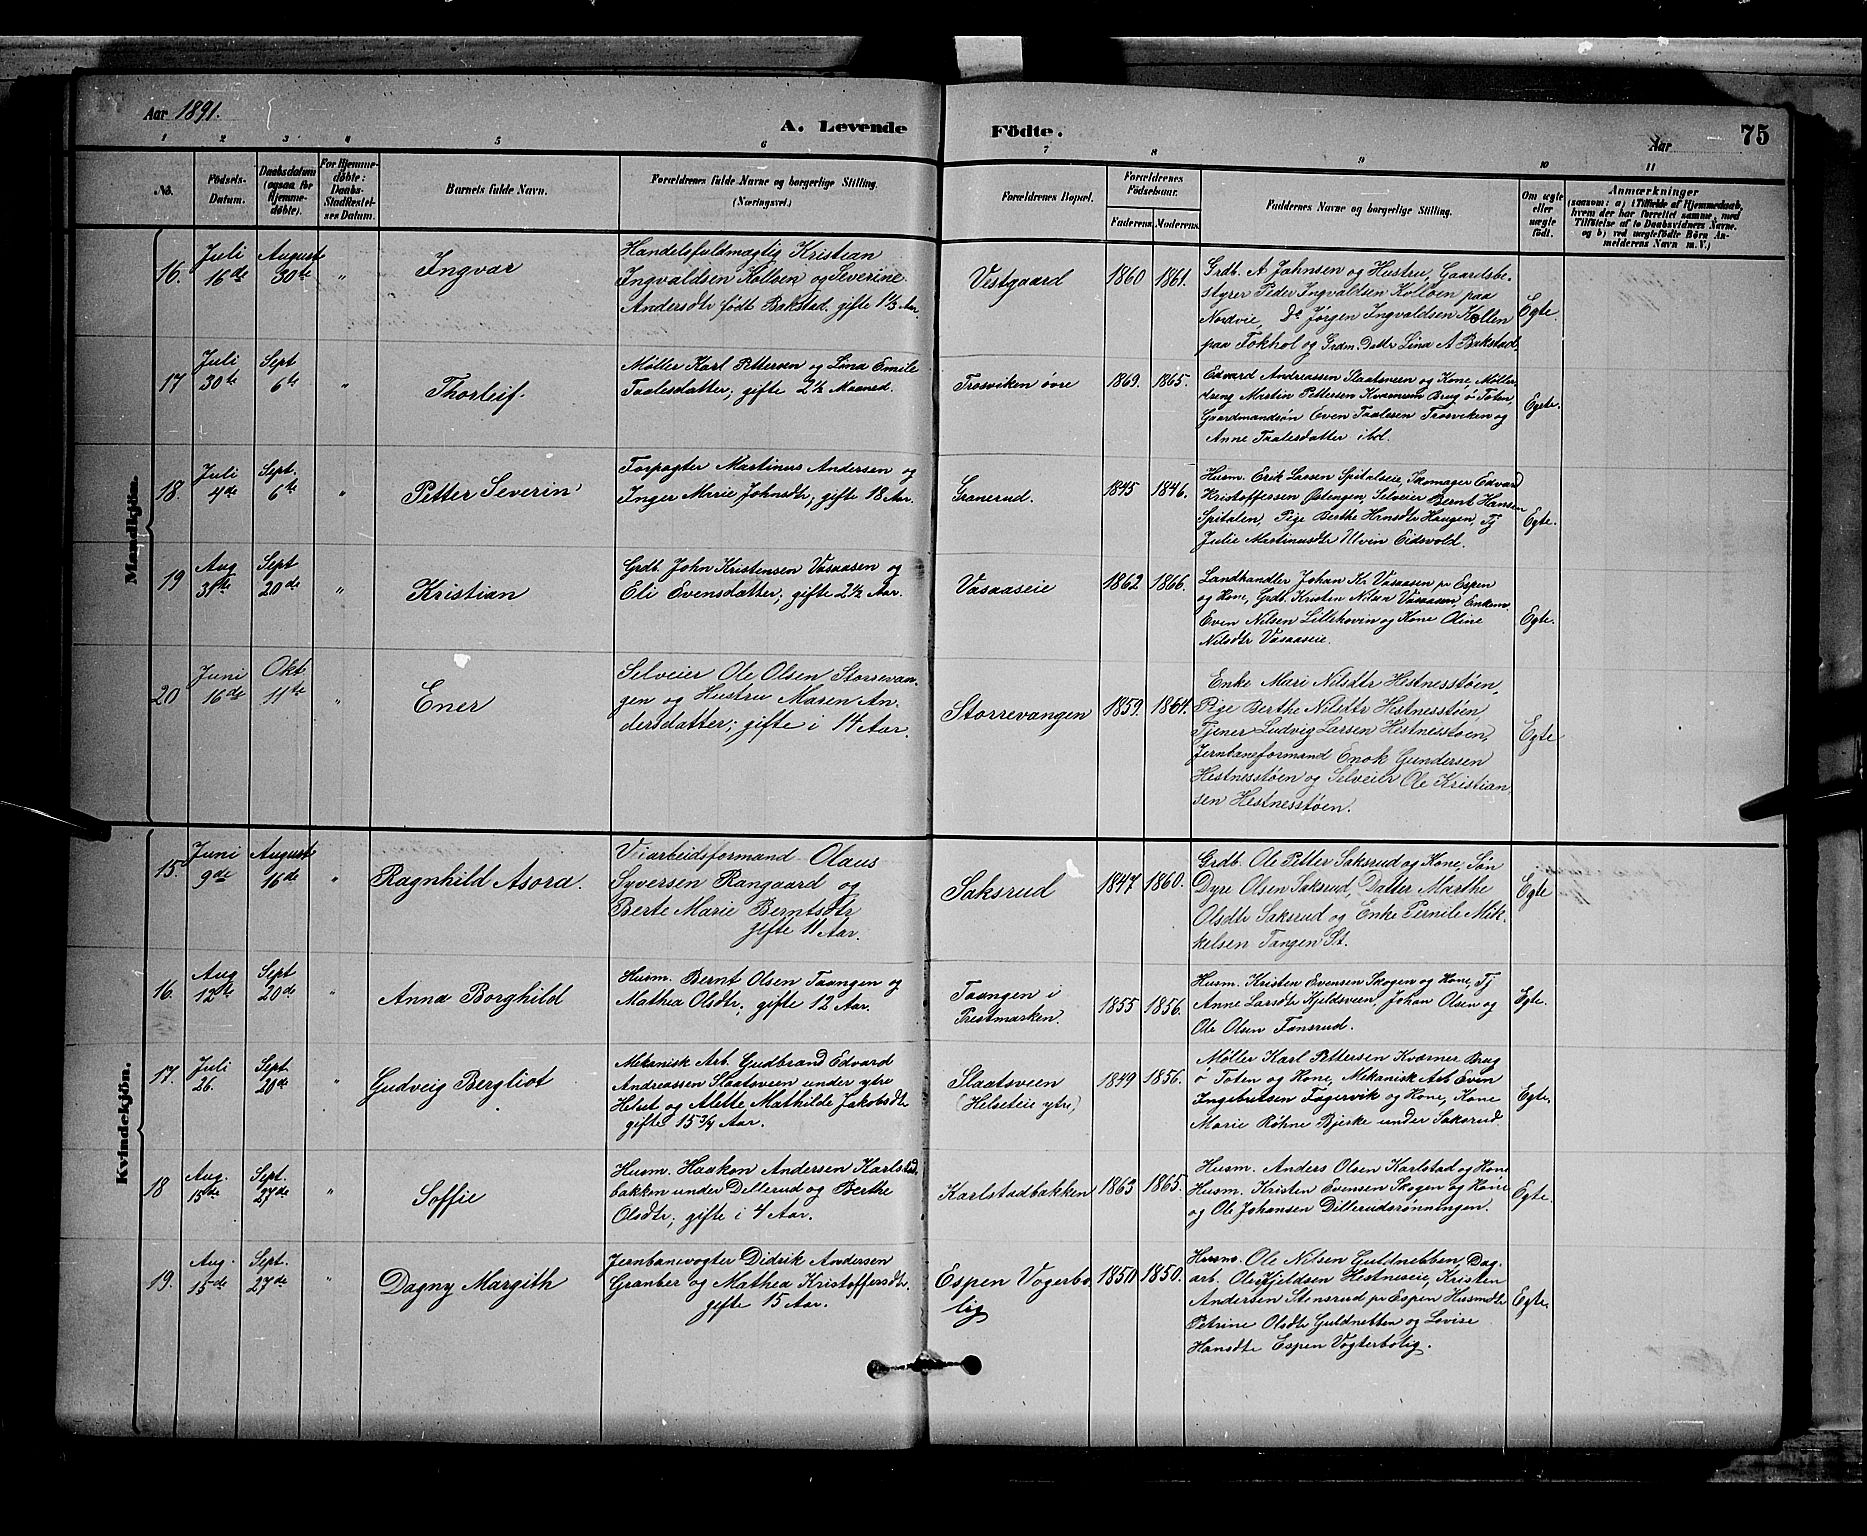 Aar 1891.
A. Levende
Födte.
Aar
75
1
2
3
4
5
6
7
8
9
10
11
No.
Födsels-
Datum.
Daabsdatum
(ogsaa for
Hjemme-
døbte).
For Hjemme-
døbte:
Daabs-
Stadfæstel-
ses Datum.
Barnets fulde Navn.
Forældrenes fulde Navne og borgerlige Stilling.
(Næringsvei.)
Forældrenes Bopæl.
Forældrenes
Födselsaar.
Faderens.
Moderens.
Faddernes Navne og borgerlige Stilling.
Om ægte
eller
uægte
født.
Anmærkninger
(saasom: a) i Tilfælde af Hjemmedaab,
hvem der har forrettet samme, med
Tilføielse af to Daabsvidners Navne,
og b) ved uægtefødte Børn An-
melderens Navn m. V.)
Mandkjön.
16.
Juli
16de
August
30te
"
Ingvar
Handelsfuldmægtig Kristian
Ingvaldsen Kolloen og Severine
Andersdtr født Bakstad. gifte 1½ Aar.
Vestgaard
1860
1861.
Grdb. A Johnsen og Hustru, Gaardsbe-
styrer Peder Ingvaldsen Kolloen paa
Nordvie, Do Jørgen Ingvaldsen Kollen
paa Fokhol og Grdm. Dattr Lina A Bakstad.
Egte.
17
Juli
30te
Sept
6te
"
Thorleif.
Møller Karl Pettersen og Lina Emile
Taalesdatter; gifte 2½ Maaned.
Trosviken øvre
1869.
1865.
Edvard Andreassen Slaatsveen og Kone, Møller-
dreng Martin Pettersen Kværnum Brug ø Toten,
Gaardmandsøn Even Taalesen Trosviken og
Anne Taalesdatter ibd.
Egte.
18.
Juli
4de
Sept.
6te
"
Petter Severin
Forpagter Martinus Andersen og
Inger Marie Johnsdtr, gifte 18 Aar.
Granerud.
1845
1846.
Husm. Erik Larsen Spitalseie, Skomager Edvard
Kristoffersen Østengen, Selveier Bernt Hansen
Spitalen, Pige Berthe Hansdtr Haugen, Tj
Julie Martinusdtr Ulvin Eidsvold.
Egte.
19
Aug
31te
Sept
20de
"
Kristian
Grdb. John Kristensen Vasaasen og
Eli Evensdatter; gifte 2½ Aar.
Vasaaseie
1862
1866.
Landhandler Johan Kr Vasaasen pr Espen
og Kone, Grdb. Kristen Nilsen Vasaasen, Enkem.
Even Nilsen Lillehovin og Kone Oline
Nilsdtr Vasaaseie.
Egte.
20
Juni
16de
Okt
11te
"
Ener
Selveier Ole Olsen Storrevan-
gen og Hustru Maren An-
dersdatter; gifte i 14 Aar.
Storrevangen
1859.
1864.
Enke Mari Nilsdtr Hestnesstøen,
Pige Berthe Nilsdtr Hestnesstøen,
Tjener Ludvig Larsen Hestnesstøen,
Jernbaneformand Enok Gundersen
Hestnesstøen og Selveier Ole Kristian-
sen Hestnesstøen.
Egte
Kvindekjön.
15.
Juni
9de
August
16de
"
Ragnhild Asora.
Veiarbeidsformand Olaus
Syversen Rangaard og
Berte Marie Berntsdtr
gifte 11 Aar.
Saksrud
1847
1860.
Grdb. Ole Petter Saksrud og Kone, Søn
Dyre Olsen Saksrud, Datter Marthe
Olsdtr Saksrud og Enke Pernile Mik-
kelsen Tangen St.
Egte
16.
Aug
12te
Sept
20de
"
Anna Borghild
Husm. Bernt Olsen Taangen og
Mathea Olsdtr, gifte 12 Aar.
Taangen i
Prestmarken.
1855
1856.
Husm. Kristen Evensen Skogen og Kone, Tj
Anne Larsdtr Kjeldsveen, Johan Olsen og
Ole Olsen Fansrud.
Egte.
17.
Juli
26.
Sept.
20de
"
Gudveig Bergliot
Mekanisk Arb. Gudbrand Edvard
Andreassen Slaatsveen under ytre
Helset og Alette Mathilde Jakobsdtr
gifte 15¾ Aar.
Slaatsveen
(Helseteie ytre)
1849
1856.
Møller Karl Pettersen Kværner Brug
ø Toten og Kone, Mekanisk Arb Even
Ingebretsen Fagervik og Kone, Kone
Marie Røhne Bjerke under Saksrud.
Egte.
18
Aug.
15de
Sept.
27de
"
Soffie
Husm. Haakon Andersen Karlstad-
bakken under Dillerud og Berthe
Olsdtr, gifte i 4 Aar.
Karlstadbakken
1863
1865.
Husm. Anders Olsen Karlstad og Kone
Husm. Kristen Evensen Skogen og Kone
og Ole Johansen Dillerudsrønningen.
Egte.
19.
Aug.
15de
Sept.
27de
"
Dagny Margith
Jernbanevogter Didrik Andersen
Granber og Mathea Kristoffersdtr.
gifte 15 Aar.
Espen Vogerbo-
lig
1850
1850.
Husm. Ole Nilsen Guldnebben, Dag-
arb. Ole Kjeldsen Hestneseie, Kristen
Andersen Stensrud pr Espen Husmdtr
Petrine Olsdtr Guldnebben og Lovise
Hansdtr Espen Vogterbolig.
Egte.